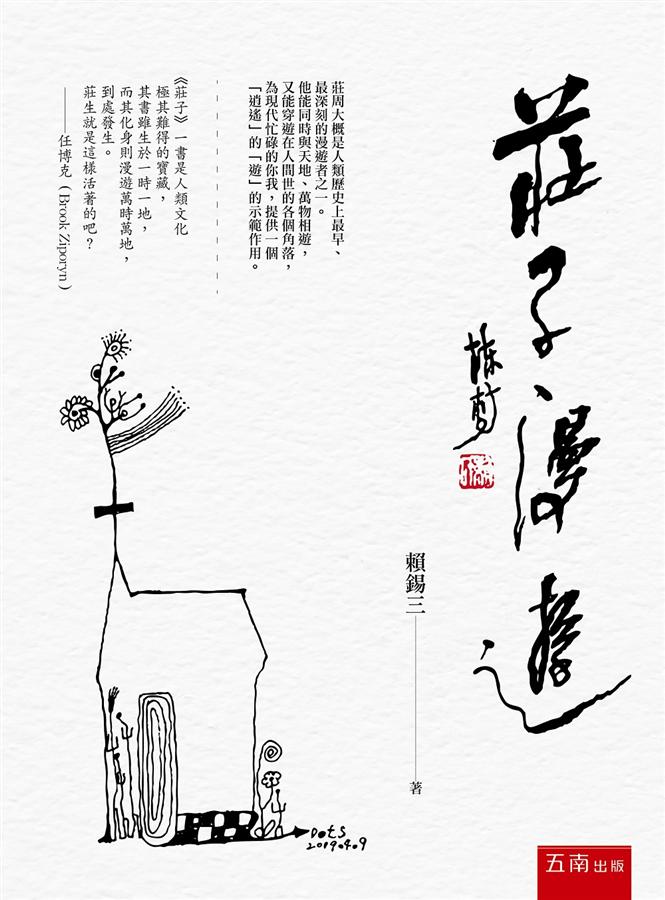 莊子漫遊
賴錫三
著
莊周大概是人類歷史上最早、
最深刻的漫遊者之一。
他能同時與天地、萬物相遊，
又能穿遊在人間世的各個角落，
為現代忙碌的你我，提供一個
「逍遙」的「遊」的示範作用。
《莊子》一書是人類文化
極其難得的寶藏，
其書雖生於一時一地，
而其化身則漫遊萬時萬地，
到處發生。
莊生就是這樣活著的吧？
——任博克（Brook Ziporyn）
Dots
2019.4.9
五南出版